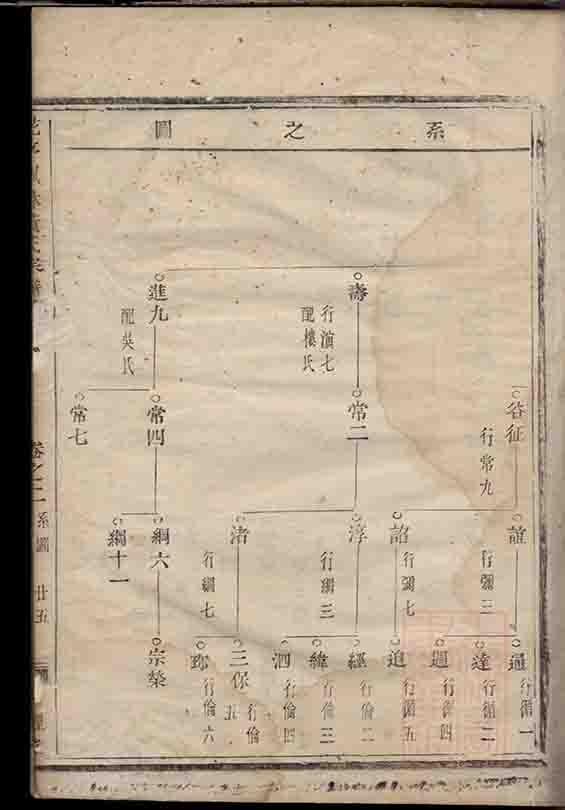 系之圖
谷征
行常九
誼
行彌三
行循一
達
行循二
行循四
詔
行彌七
追
行循五
壽
行演七
配樓氏
常二
淳
行綱三
經
行倫二
緯
行倫三
泗
行倫四
渚
行綱七
三保
行倫五
行倫六
進九
配吳氏
常四
綱六
宗榮
綱十一
常七
卷之二
系圖
廿五